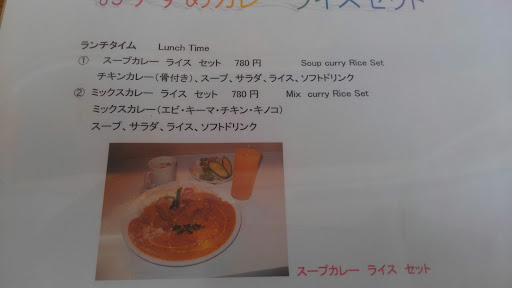 おすすめカレー ライスセット
ランチタイム Lunch Time
① スープカレー ライス セット 780円 Soup curry Rice Set
チキンカレー(骨付き)、スープ、サラダ、ライス、ソフトドリンク
② ミックスカレー ライス セット 780円 Mix curry Rice Set
ミックスカレー(エビ・キーマ・チキン・キノコ)
スープ、サラダ、ライス、ソフトドリンク
スープカレー ライス セット